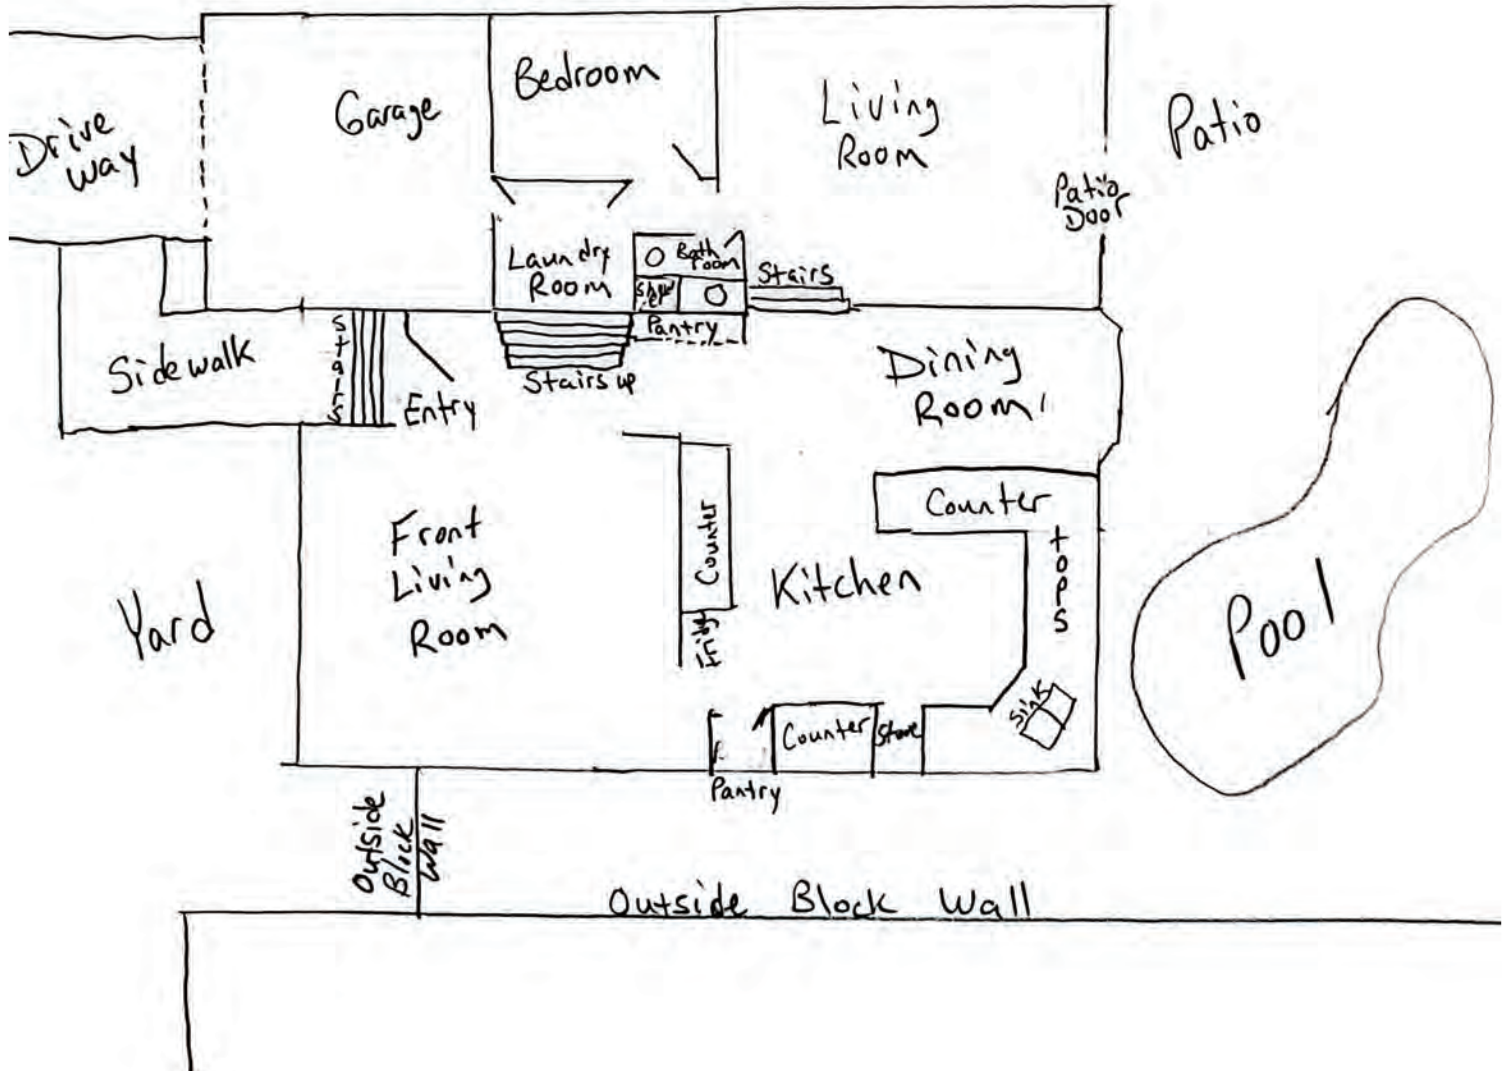 Drive
way
Garage
Bedroom
Living
Room
Patio
Patio
Door
Laundry
Room
Bath
room
Stairs
Pantry
Sidewalk
Stairs
Entry
Stairs up
Dining
Room
Yard
Front
Living
Room
Counter
Kitchen
Counter
tops
Sink
Pool
Counter
Stove
Pantry
Outside
Block
Wall
Outside Block Wall